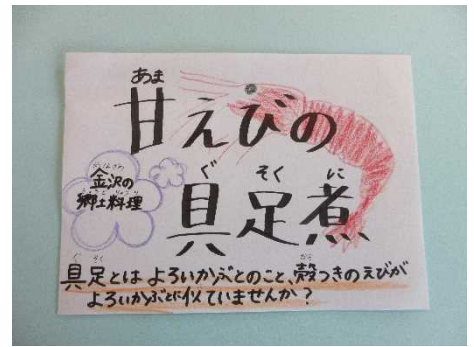 あま
甘えびの
ぐ そく に
具足煮
かなざわ
金沢の
きょうどりょうり
郷土料理
ぐ そく から
具足とはよろいかぶとのこと、殻つきのえびが
よろいかぶとに似ていませんか?